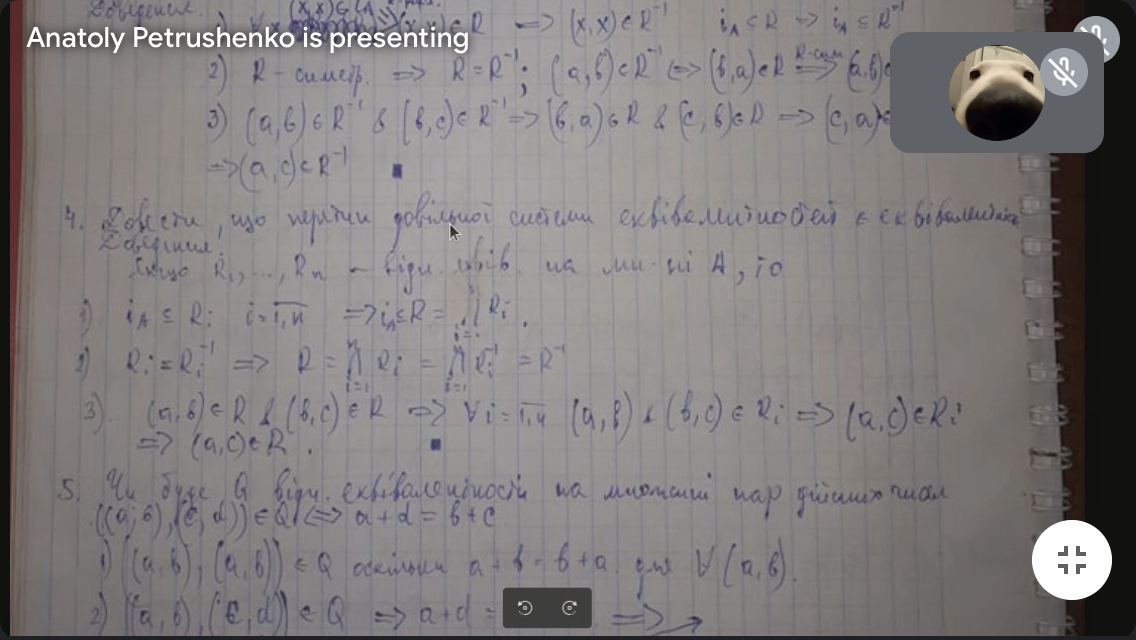 Доведення.
(x,x)∈R ⟹ (x,x)∈R⁻¹ i_A ⊆ R ⟹ i_A ⊆ R⁻¹
Anatoly Petrushenko is presenting
2) R - симетр. ⟹ R = R⁻¹; (a,b)∈R⁻¹ ⟺ (b,a)∈R ⟹ (a,b)∈
3) (a,b)∈R⁻¹ & (b,c)∈R⁻¹ ⟹ (b,a)∈R & (c,b)∈R ⟹ (c,a)∈
⟹ (a,c)∈R⁻¹ ■
4. Довести, що перетин довільної системи еквівалентностей є еквівалентність
Доведення.
Якщо R₁, ..., Rₙ - відн. еквів. на мн-ні A, то
1) i_A ⊆ Rᵢ i = 1,n ⟹ i_A ⊆ R = ⋂ᵢ₌₁ⁿ Rᵢ.
2) Rᵢ = Rᵢ⁻¹ ⟹ R = ⋂ᵢ₌₁ⁿ Rᵢ = ⋂ᵢ₌₁ⁿ Rᵢ⁻¹ = R⁻¹
3) (a,b)∈R & (b,c)∈R ⟹ ∀i = 1,n (a,b) & (b,c)∈Rᵢ ⟹ (a,c)∈Rᵢ
⟹ (a,c)∈R. ■
5. Чи буде Q відн. еквівалентности на множині пар дійсних чисел
((a,b),(c,d))∈Q ⟺ a+d = b+c
1) ((a,b),(a,b))∈Q оскільки a+b = b+a для ∀(a,b).
2) ((a,b),(c,d))∈Q ⟹ a+d = ⟹